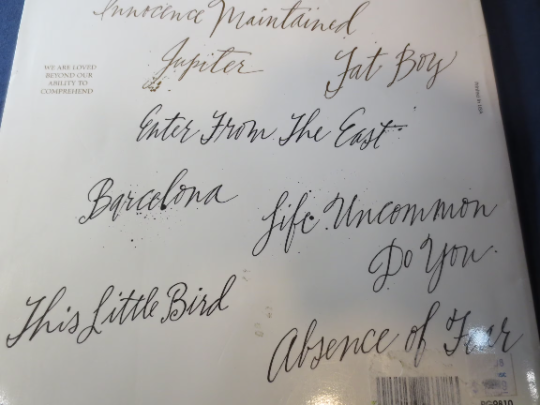 Innocence Maintained
WE ARE LOVED
BEYOND OUR
ABILITY TO
COMPREHEND
Jupiter
Fat Boy
Enter From The East
Barcelona
Life Uncommon
Do You
This Little Bird
Absence of Fear